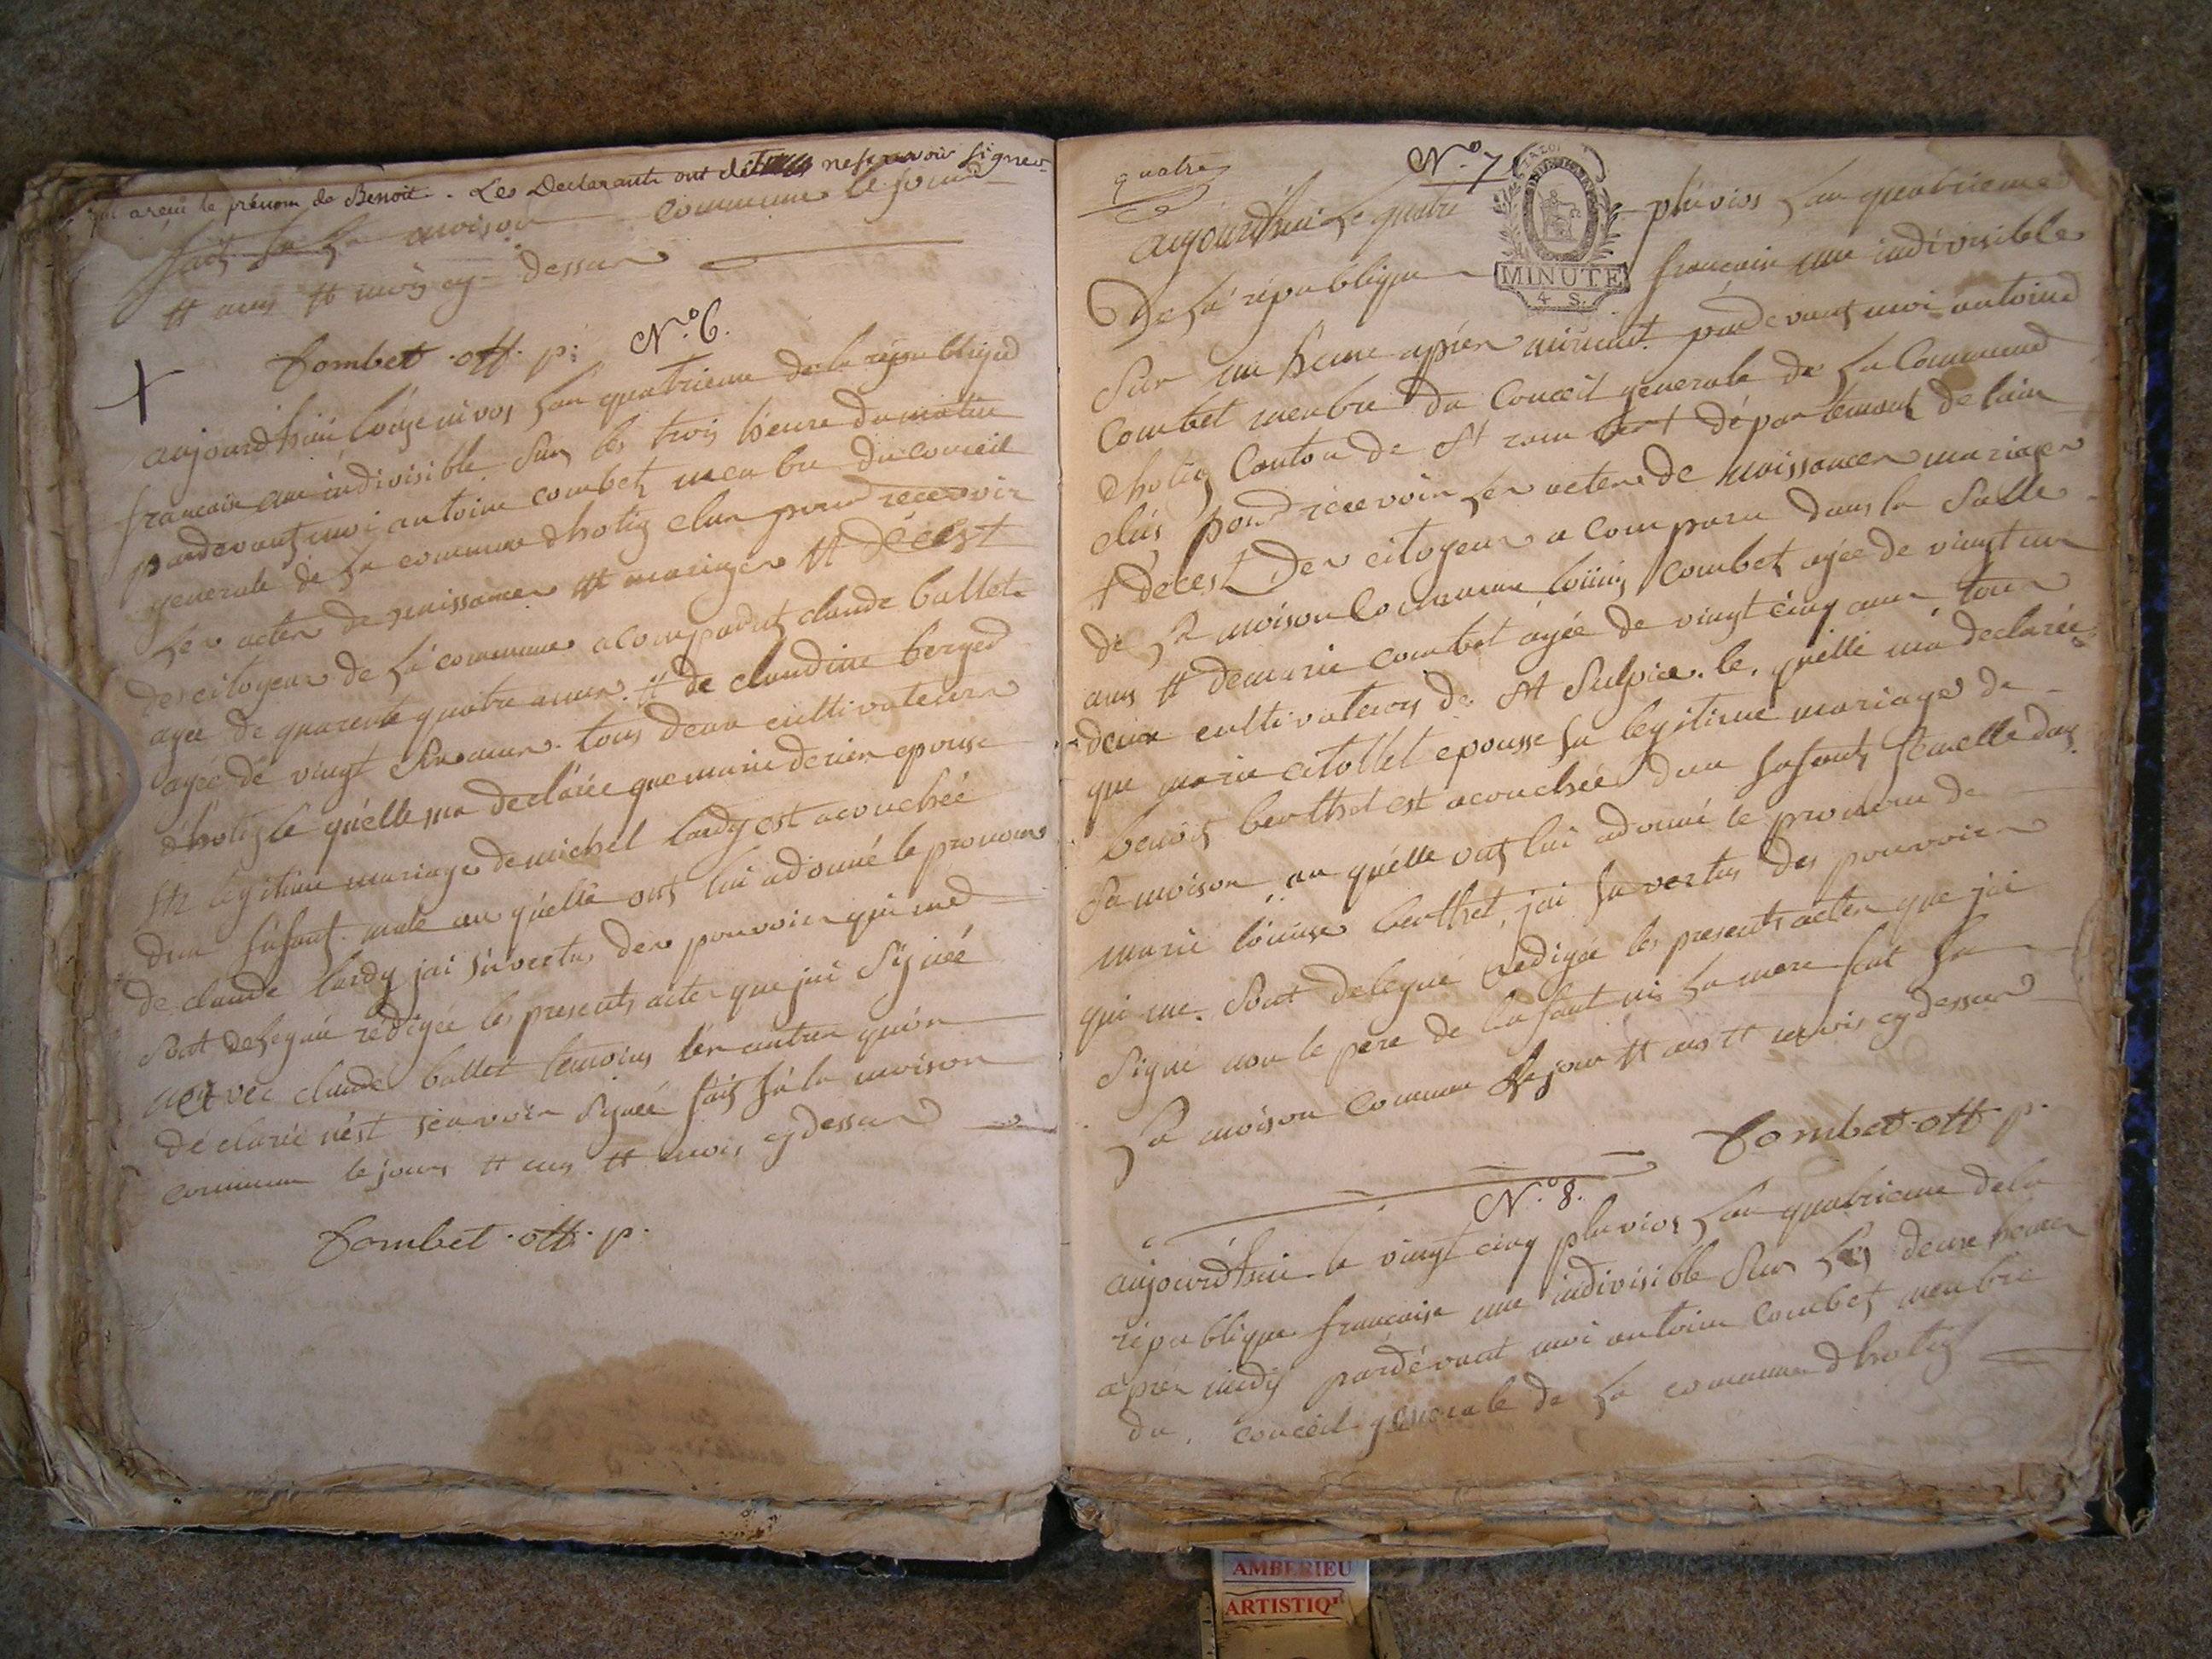 qui a reçu le prénom de Benoit. Les Declarants ont dit ne sçavoir signer
fait la maison commune le jour
tt ans tt mois cy dessus
Combet off. p:
N.o 6.
aujourdhui lonze nivos lan quatrieme de la republique
francaise une indivisible sur les trois heure du matin
pardevant moi antoine combet menbre du conceil
generale de la commune dhotig elus pour recevoir
les actes de naissances tt mariages tt décest
des citoyens de la commune a comparut claude ballet
agée de quarente quatre anes tt de claudine berged
agée de vingt anes tous deux cultivateurs
dhotig le quélle ma declarée que marie derien epouse
legitime mariage de michel lardy est acouchée
dun enfant male au quélle ont lui adonné le pronom
de claude lardy jai en vertus des pouvoirs qui me
sont delegué rédigée les presents actes que jai signée
avec claude ballet temoins les autres quon
déclaré nést scavoir signée fait la maison
commune le jours tt ans tt mois cy dessus
Combet off. p.
quatre
N.o 7
MINUTE
4 S.
aujourdhui le quatre pluvios lan quatrieme
De la république francaise une indivisible
sur une heure aprés pardevant moi antoine
Combet menbre du Conceil generale de la Commune
dhotig Canton de st rambert département de lain
elus pour récevoir les actes de naissances mariages
tt décest Des citoyens a comparu dans la Salle
de la maison Commune Combet agée de vingt un
ans tt de marie combet agée de vingt cinq ans tous
deux cultivateurs de st Sulpice le quélle ma declarée
que marie epousse legitime mariage de
benois berthet est acouchée dun enfant femelle dans
Sa maison au quélle ont lui adonné le pronom de
marie louise berthet, jai en vertus des pouvoirs
qui me sont delegué redigée les presents actes que jai
signé non le pére de lenfant ni la mere fait
la maison comune le jour tt ans tt mois cy dessus
Combet off p.
N.o 8.
aujourdhui le vingt cinq pluvios lan quatrieme de la
république francaise une indivisible sur les deux heures
apres midy pardévant moi antoine Combet menbre
du conceil generale de la commune dhotig
AMBERIEU
ARTISTIQ